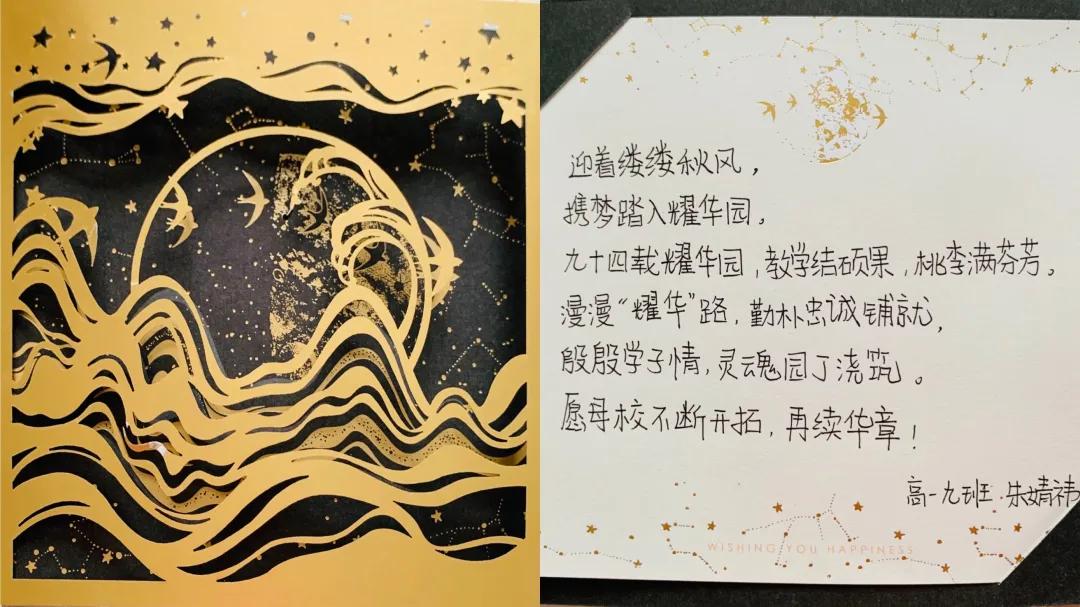 迎着缕缕秋风，
携梦踏入耀华园。
九十四载耀华园，教学结硕果，桃李满芬芳。
漫漫“耀华”路，勤朴忠诚铺就，
殷殷学子情，灵魂园丁浇筑。
愿母校不断开拓，再续华章！
高一九班 朱婧祎
WISHING YOU HAPPINESS